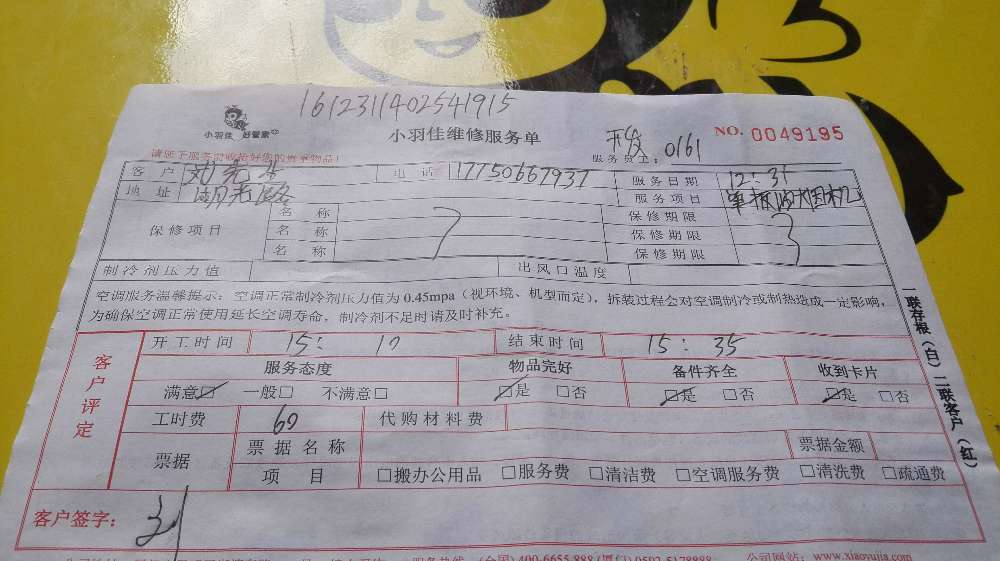 1612311402541915
小羽佳 好管家
小羽佳维修服务单
NO. 0049195
请您于服务前收拾好您的贵重物品!
服务员工: 0161
客户 电话 17750667937 服务日期 12.31
地址 服务项目
保修项目 名称 7 保修期限 3
名称 保修期限
名称 保修期限
制冷剂压力值 出风口温度
空调服务温馨提示:空调正常制冷剂压力值为0.45mpa(视环境、机型而定),拆装过程会对空调制冷或制热造成一定影响,
为确保空调正常使用延长空调寿命,制冷剂不足时请及时补充。
客户评定
开工时间 15: 10 结束时间 15: 35
服务态度 物品完好 备件齐全 收到卡片
满意☑ 一般□ 不满意□ ☑是 □否 ☑是 □否 ☑是 □否
工时费 60 代购材料费
票据 票据名称 票据金额
项目 □搬办公用品 □服务费 □清洁费 □空调服务费 □清洗费 □疏通费
客户签字: 刘
一联存根(白)二联客户(红)
公司网站: www.xiaoyujia.com